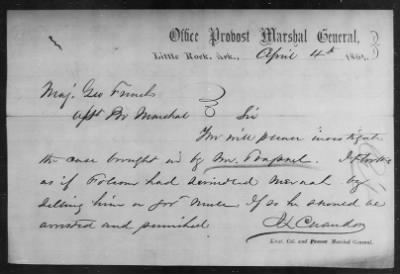 Office Provost Marshal General,
Little Rock, Ark., April 4th 186
Maj. Geo
Asst Pro Marshal
Sir
You will please investigate
the case brought in by Mr.
as if Folsom had swindled by
selling him a mule If so he should be
arrested and punished
Lieut. Col. and Provost Marshal General.